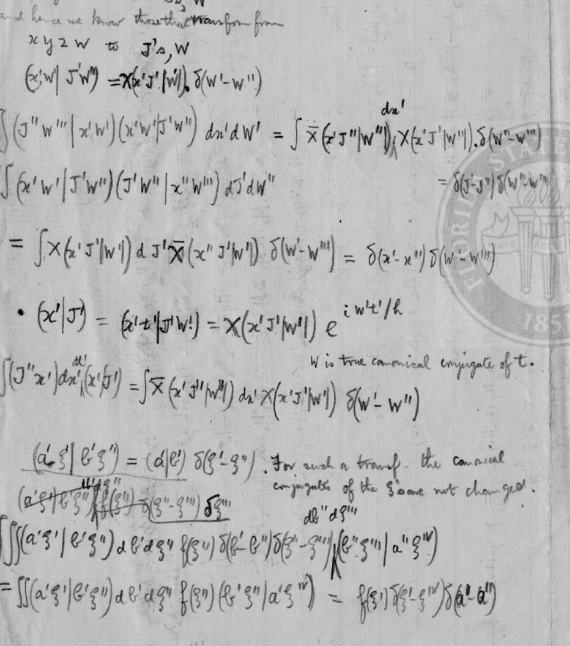 and hence we know those that transform from
x y z w to J's, W
(x'W'| J'W'') = X(x'J'|W'|). δ(W'-W'')
∫(J''W'''| x'W')(x'W'|J'W'') dx'dW' = ∫ X̄(x'J''|W''|) dx' X(x'J'|W''|). δ(W''-W''')
= δ(J'-J'') δ(W''-W''')
∫(x'W'| J'W'')(J'W''| x''W''') dJ'dW''
= ∫X(x'J'|W'|) dJ' X̄(x''J'|W'|) δ(W'-W''') = δ(x'-x'') δ(W'-W''')
• (x'|J') = (x't'|J'W') = X(x'J'|W'|) e^{iW't'/h}
W is true canonical conjugate of t.
∫(J''x')dx'dt'(x'|J') = ∫X̄(x'J''|W''|) dx' X(x'J'|W'|) δ(W'-W'')
(a'ξ'|b'ξ'') = (a'|b') δ(ξ'-ξ''). For such a transf. the canonical
conjugates of the ξ's are not changed.
∫∫∫(a'ξ'|b'ξ'') db'dξ'' f(ξ'') δ(b'-b'') δ(ξ''-ξ''') db''dξ''' (b''ξ'''|a''ξ^{IV})
= ∫∫(a'ξ'|b'ξ'') db'dξ'' f(ξ'') (b'ξ''|a'ξ^{IV}) = f(ξ') δ(ξ'-ξ^{IV}) δ(a'-a'')
FLORIDA STATE
1851